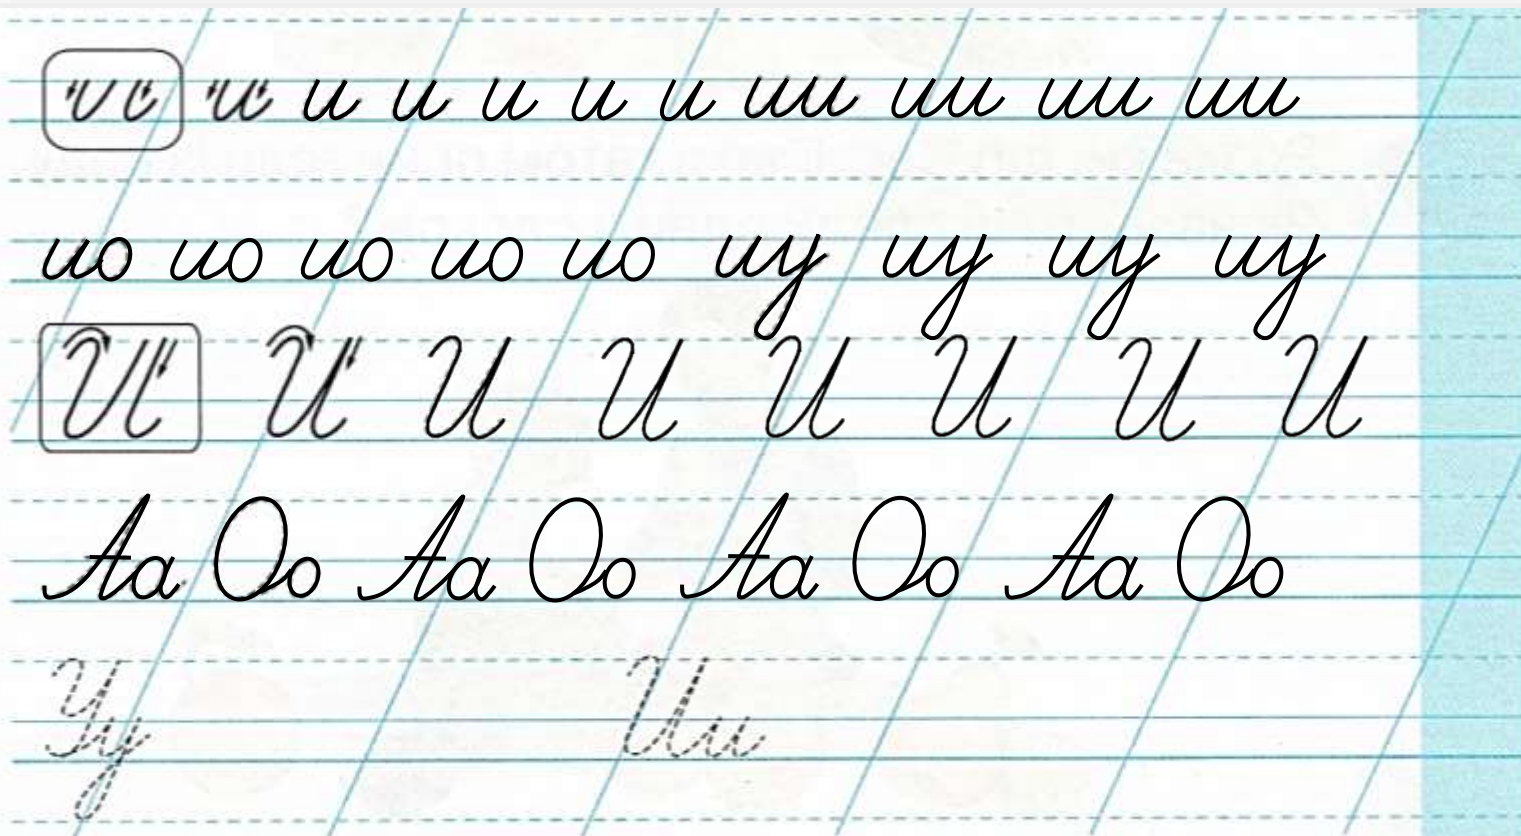 и и и и и и и ии ии ии ии
ио ио ио ио ио иу иу иу иу
И И И И И И И И
Аа Оо Аа Оо Аа Оо Аа Оо
Уу Ии